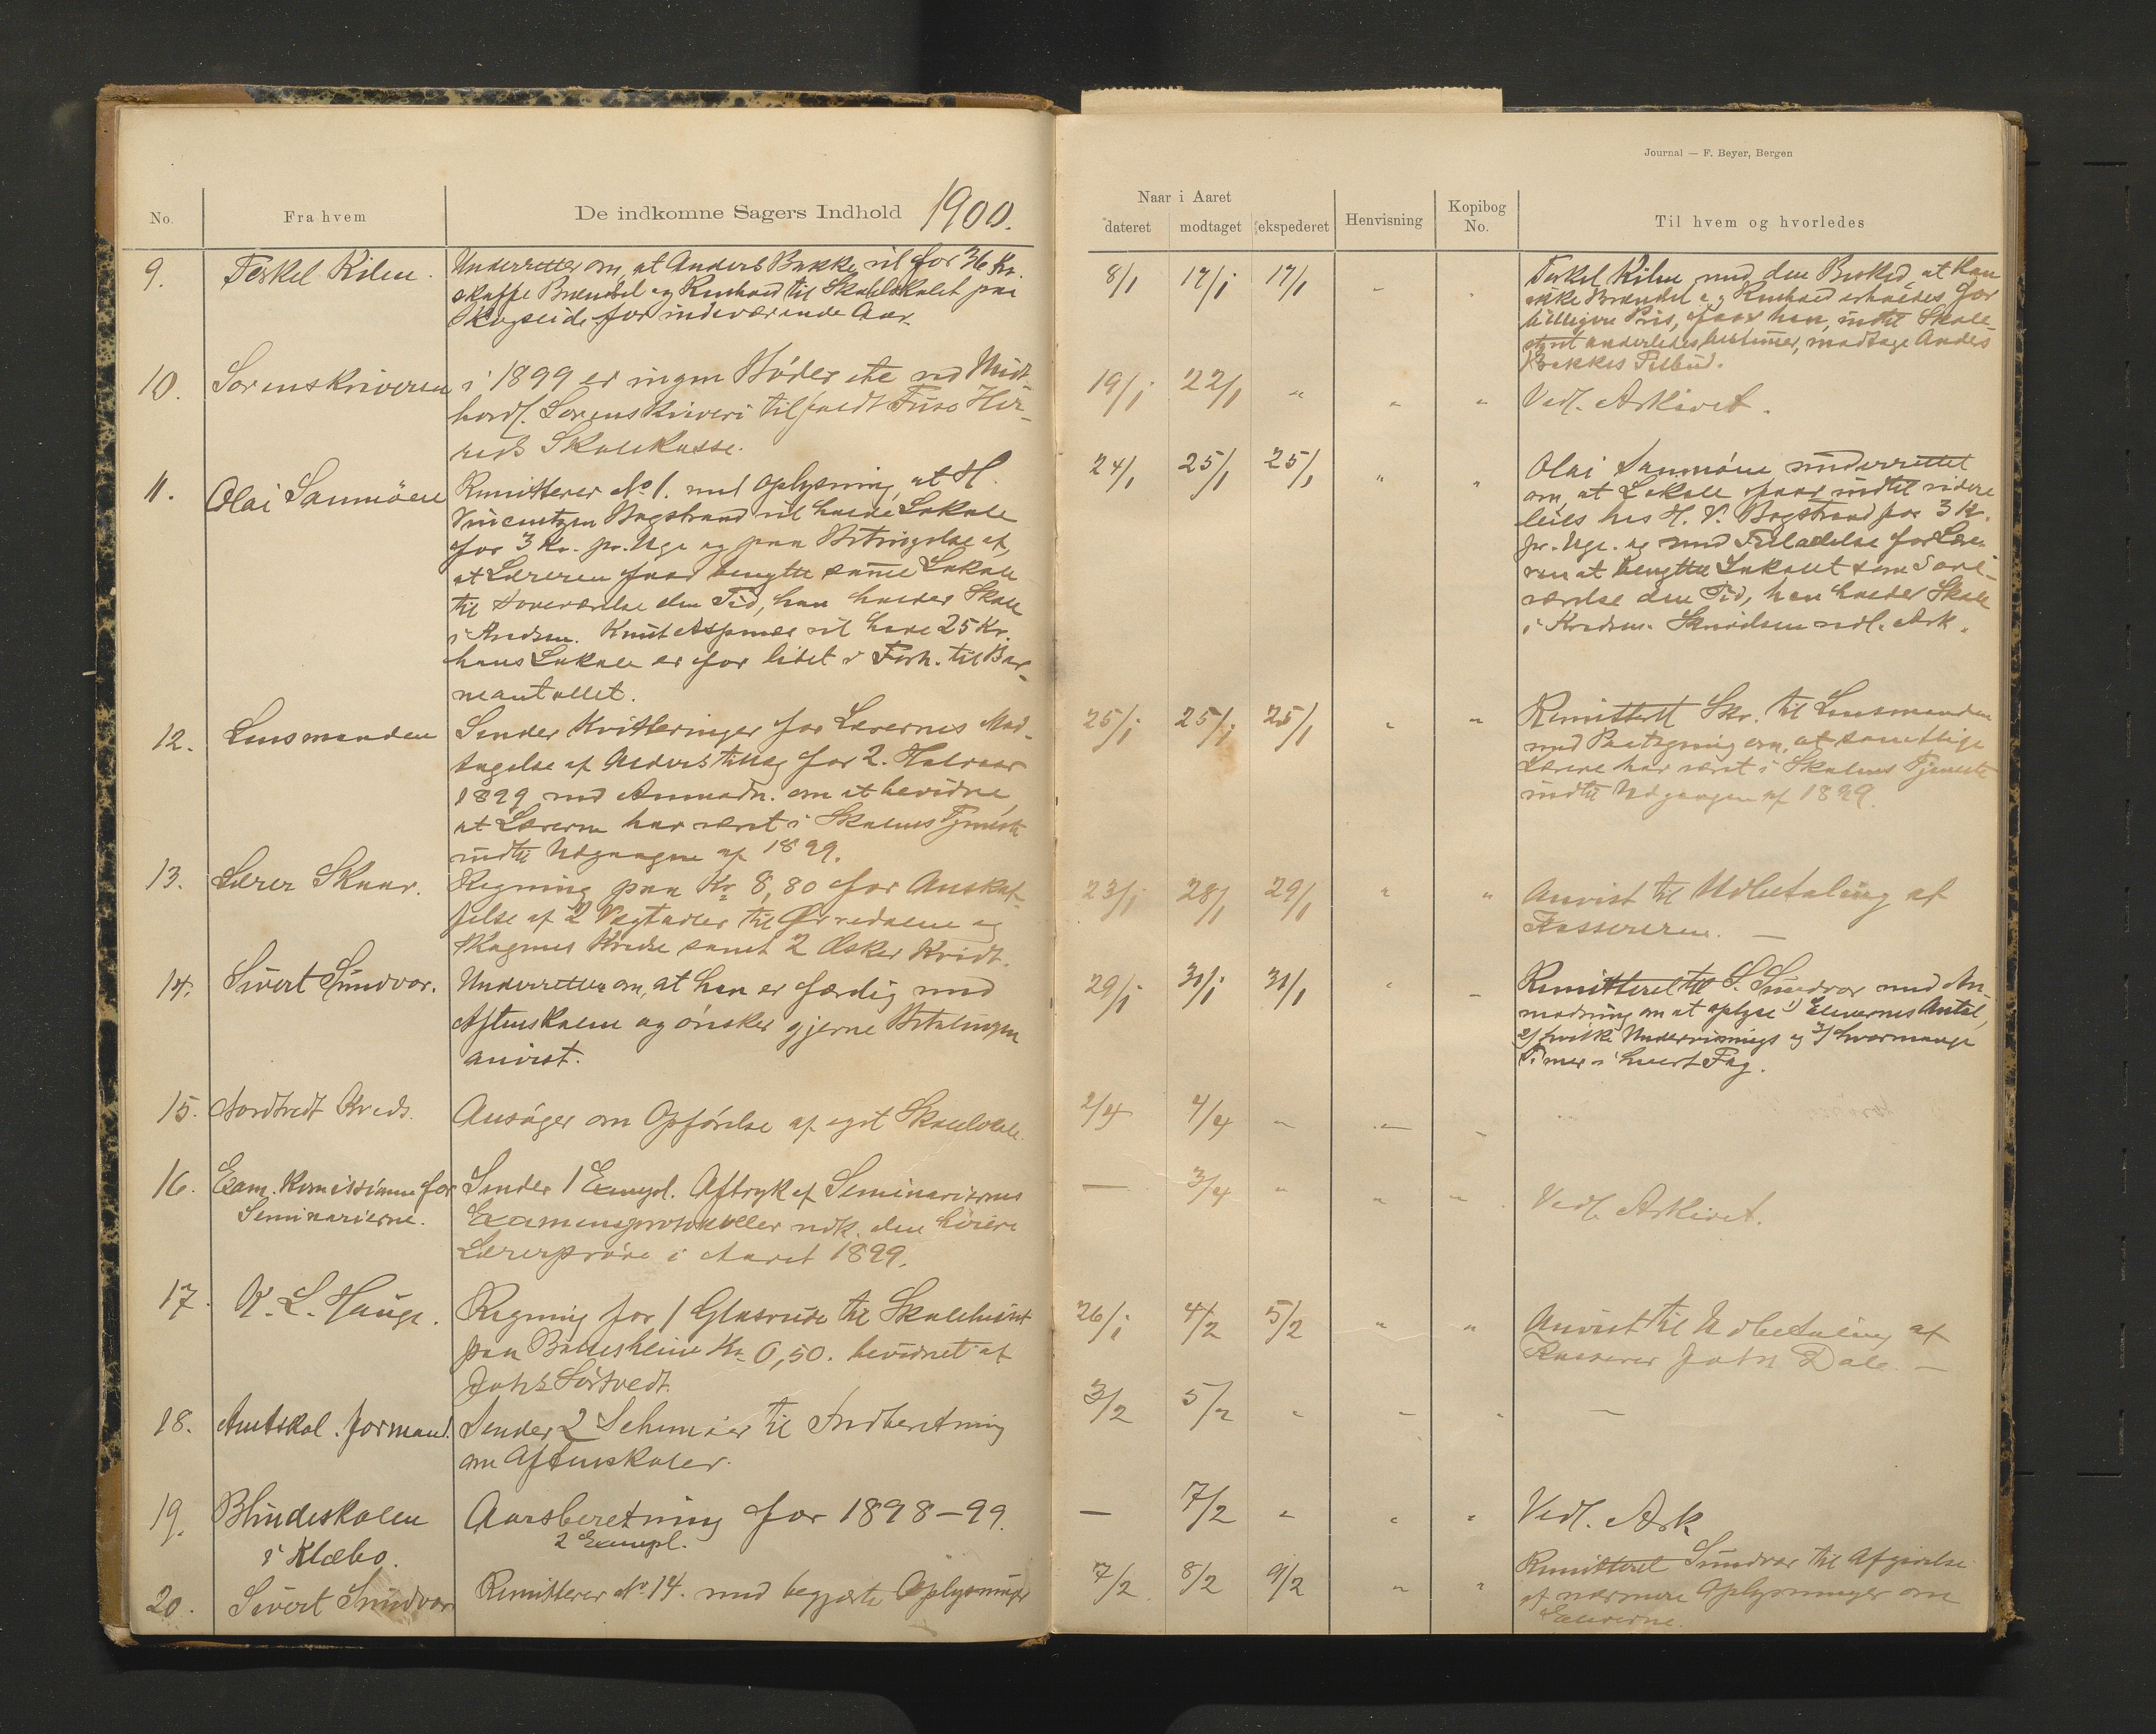 Journal — F. Beyer, Bergen
No.
Fra hvem
De indkomne Sagers Indhold
1900.
Naar i Aaret
dateret
modtaget
ekspederet
Henvisning
Kopibog
No.
Til hvem og hvorledes
9.
Terkel Kilen.
Underretter om, at Anders Bakke vil for 36 Kr.
skaffe Brændsel og Renhold til Skolelokalet paa
Skogseide for indeværende Aar.
8/1
17/1
17/1
Terkel Kilen med den Besked, at kan
ikke Brændsel og Renhold erholdes for
billigere Pris, faar han, indtil Skole-
styret anderledes bestemmer, modtage Anders
Bakkes Tilbud.
10.
Sorenskriveren
i 1899 er ingen Bøder etc ved Midt-
hordl. Sorenskriveri tilfaldt Fuse Her-
reds Skolekasse.
19/1
22/1
"
"
"
Vedl. Arkivet.
11.
Olai Sanmöen
Remitterer No 1. med Oplysning, at H.
Vincentzen Bogstrand vil holde Lokale
for 3 Kr. pr. Uge og paa Betingelse af,
at Læreren faar benytte samme Lokale
til Soveværelse den Tid, han holder Skole
i Kredsen. Knut vil have 25 Kr.
hans Lokale er for lidet i Forh. til Bar-
neantallet.
24/1
25/1
25/1
"
"
Olai Sanmöen underrettet
om, at Lokale faar indtil videre
leies hos H. V. Bogstrand for 3 Kr.
pr. Uge. og med Tilladelse for Lære-
ren at benytte Lokalet som Sove-
værelse den Tid, han holder Skole
i Kredsen. Skrivelsen vedl. Ark.
12.
Lensmanden
Sender Kvitteringer for Lærernes Mod-
tagelse af Alderstillæg for 2. Halvaar
1899 med Anmodn. om at bevidne,
at Lærerne har været i Skolens Tjeneste
indtil Udgangen af 1899.
25/1
25/1
25/1
"
"
Remitteret Skr. til Lensmanden
med Paategning om, at samtlige
Lærere har været i Skolens Tjeneste
indtil Udgangen af 1899.
13.
Lærer Skaar.
Regning paa Kr 8,80 for Anskaf-
felse af 2 Vægtavler til Ørredalene og
Skagenes Kredse samt 2 Æsker Kridt.
23/1
28/1
29/1
"
"
Anvist til Udbetaling af
Kassereren. —
14.
Sivert Sundvor.
Underretter om, at han er færdig med
Aftenskolen og ønsker gjerne Betalingen
anvist.
29/1
31/1
31/1
"
Remitteret til S. Sundvor med An-
modning om at oplyse 1) Elevernes Antal,
2) hvilke Undervisnings og 3) hvormange
Timer i hvert Fag.
15.
Nordtvedt Kreds.
Ansøger om Opførelse af eget Skolelokale.
2/4
4/4
16.
Exam. Komissionen for
Seminarierne.
Sender 1 Exempl. Aftryk af Seminariernes
Examensprotokoller vedk. den høiere
Lærerprøve i Aaret 1899.
—
3/4
"
"
"
Vedl. Arkivet.
17.
K. L. Hauge.
Regning for 1 Glasrude til Skolehuset
paa Baldersheim Kr 0,50. bevidnet af
Johs Sörtvedt.
26/1
4/2
5/2
"
"
Anvist til Udbetaling af
Kasserer John Dale. —
18.
Amtskol. formand.
Sender 2 Schemaer til Indberetning
om Aftenskoler.
3/2
5/2
—
19.
Blindeskolen
i Klæbo.
Aarsberetning for 1898–99.
2 Exempl.
—
7/2
"
"
"
Vedl. Ark
20.
Sivert Sundvor
Remitterer No 14. med begjærte Oplysninger
7/2
8/2
9/2
"
"
Remitteret Sundvor til Afgivelse
af nærmere Oplysninger om
Eleverne.